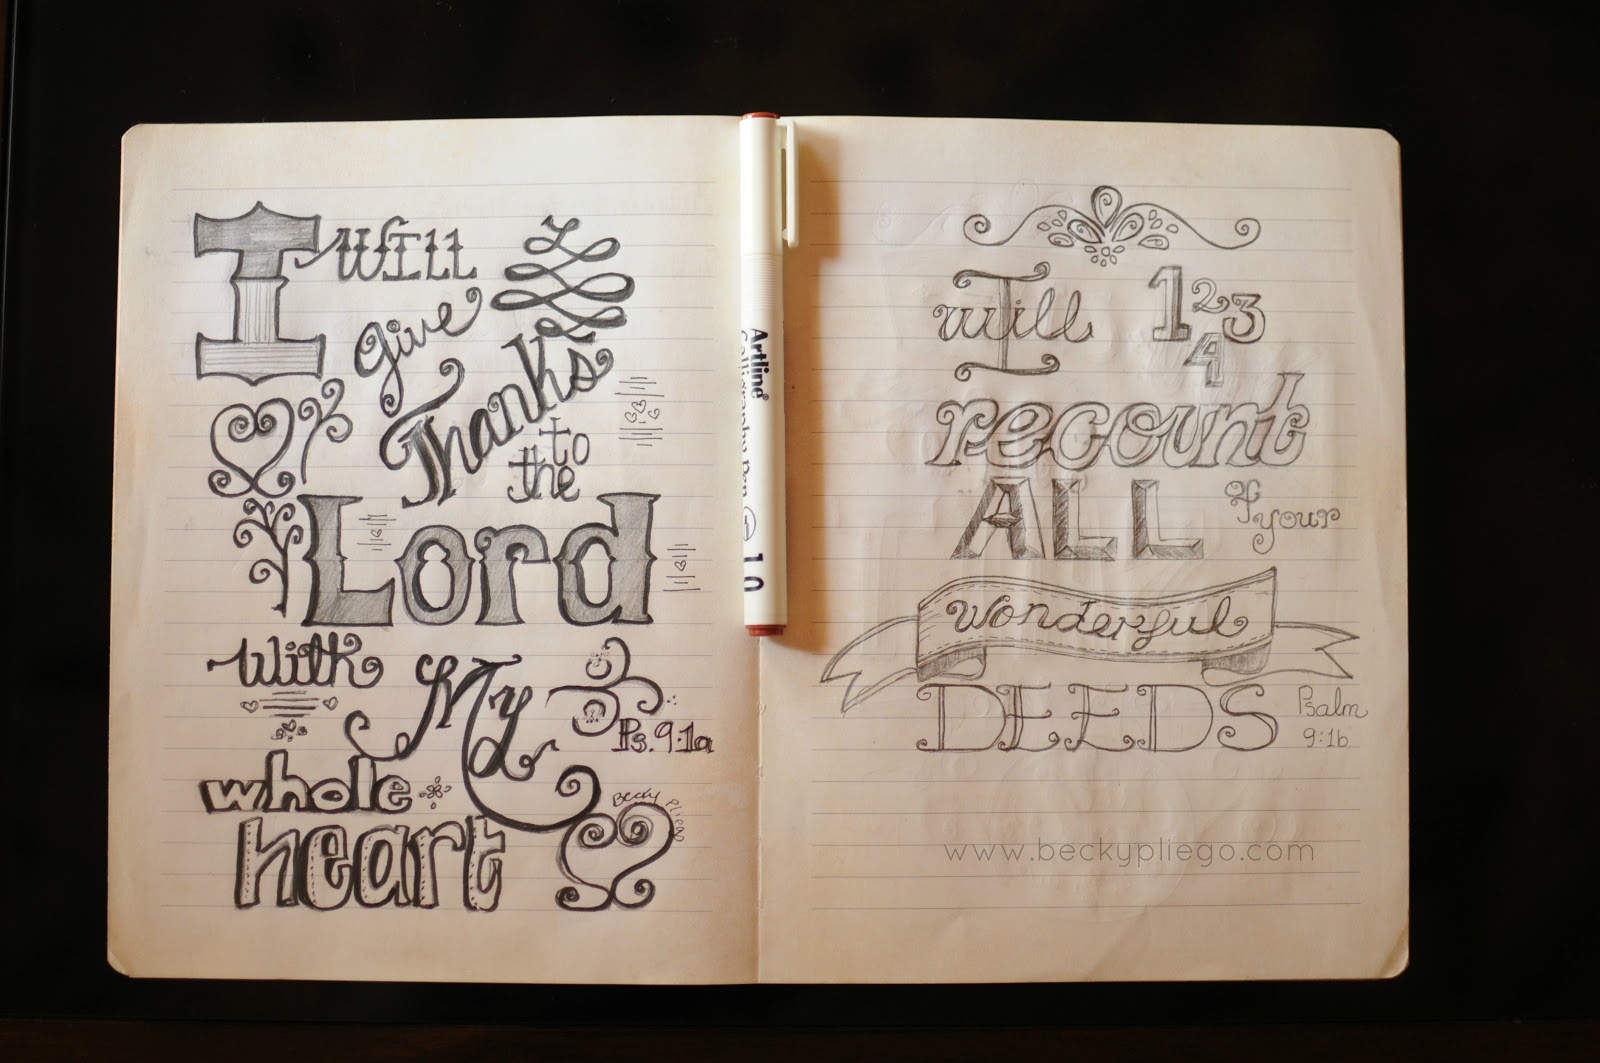 I will
give
Thanks
to
the
Lord
with My
Ps. 9:1a
whole
heart
Becky Pliego
Artline®
Calligraphy Pen
1.0
I will 1 2 3
4
recount
ALL of your
wonderful
DEEDS Psalm
9:1b
www.beckypliego.com